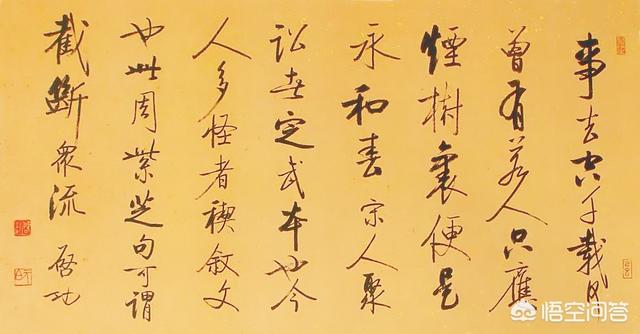 事去空千載何
曾有若人只應
煙樹裏便是
永和春宋人聚
訟者定武本也今
人多怪者禊敘文
也此周紫芝句可謂
截斷眾流 啟功
悟空问答